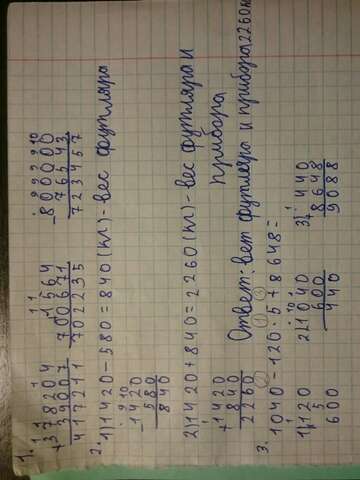 1.
1 1 1
+378204
39007
417211
1 1
+1564
700671
702235
9 9 9 9 10
-800000
76543
723457
2.
1)1420-580=840(кг)-вес футляра
9 10
-1420
580
840
2)1420+840=2260(кг)-вес футляра и
прибора
1
+1420
840
2260
Ответ: вет футляра и прибора 2260к
3. 1040-120·5+8648=
1)120
5
600
2)1040
600
440
3)440
8648
9088